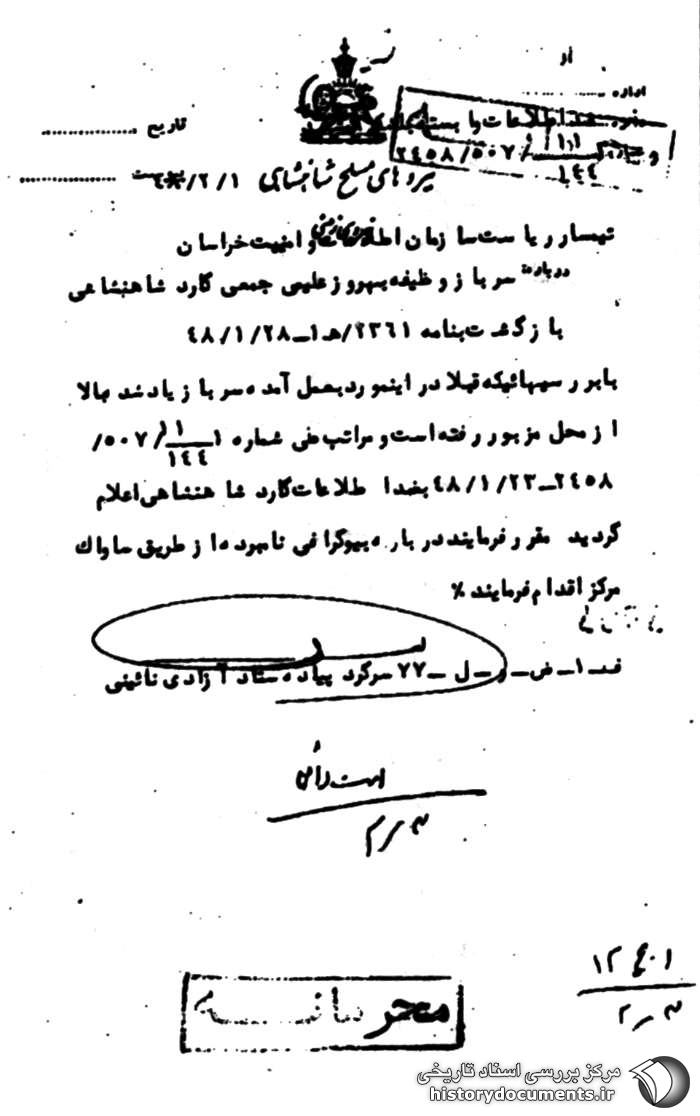 از
اداره
تاریخ
نیروهای مسلح شاهنشاهی
۴۸/۲/۱
۲۴۵۸/۵۰۷/
۱۴۴
تیمسار ریاست سازمان اطلاعات و امنیت خراسان
درباره سرباز وظیفه بهروز علیمی جمعی گارد شاهنشاهی
بازگشت بنامه ۲۳۶۱/هـ۱ـ۴۸/۱/۲۸
با بررسیهائیکه قبلا در اینمورد بعمل آمده سرباز یاد شده بالا
از محل مزبور رفته است و مراتب طی شماره ۱۱/۱۴۴/۵۰۷/
۲۴۵۸ـ۴۸/۱/۲۳ بضد اطلاعات گارد شاهنشاهی اعلام
گردید مقرر فرمایند درباره بیوگرافی نامبرده از طریق ساواک
مرکز اقدام فرمایند %
ضد ـ ا ـ ض ـ و ـ ل ـ ۷۷ سرگرد پیاده ستاد آزادی نائینی
محرمانه
مرکز بررسی اسناد تاریخی
historydocuments.ir